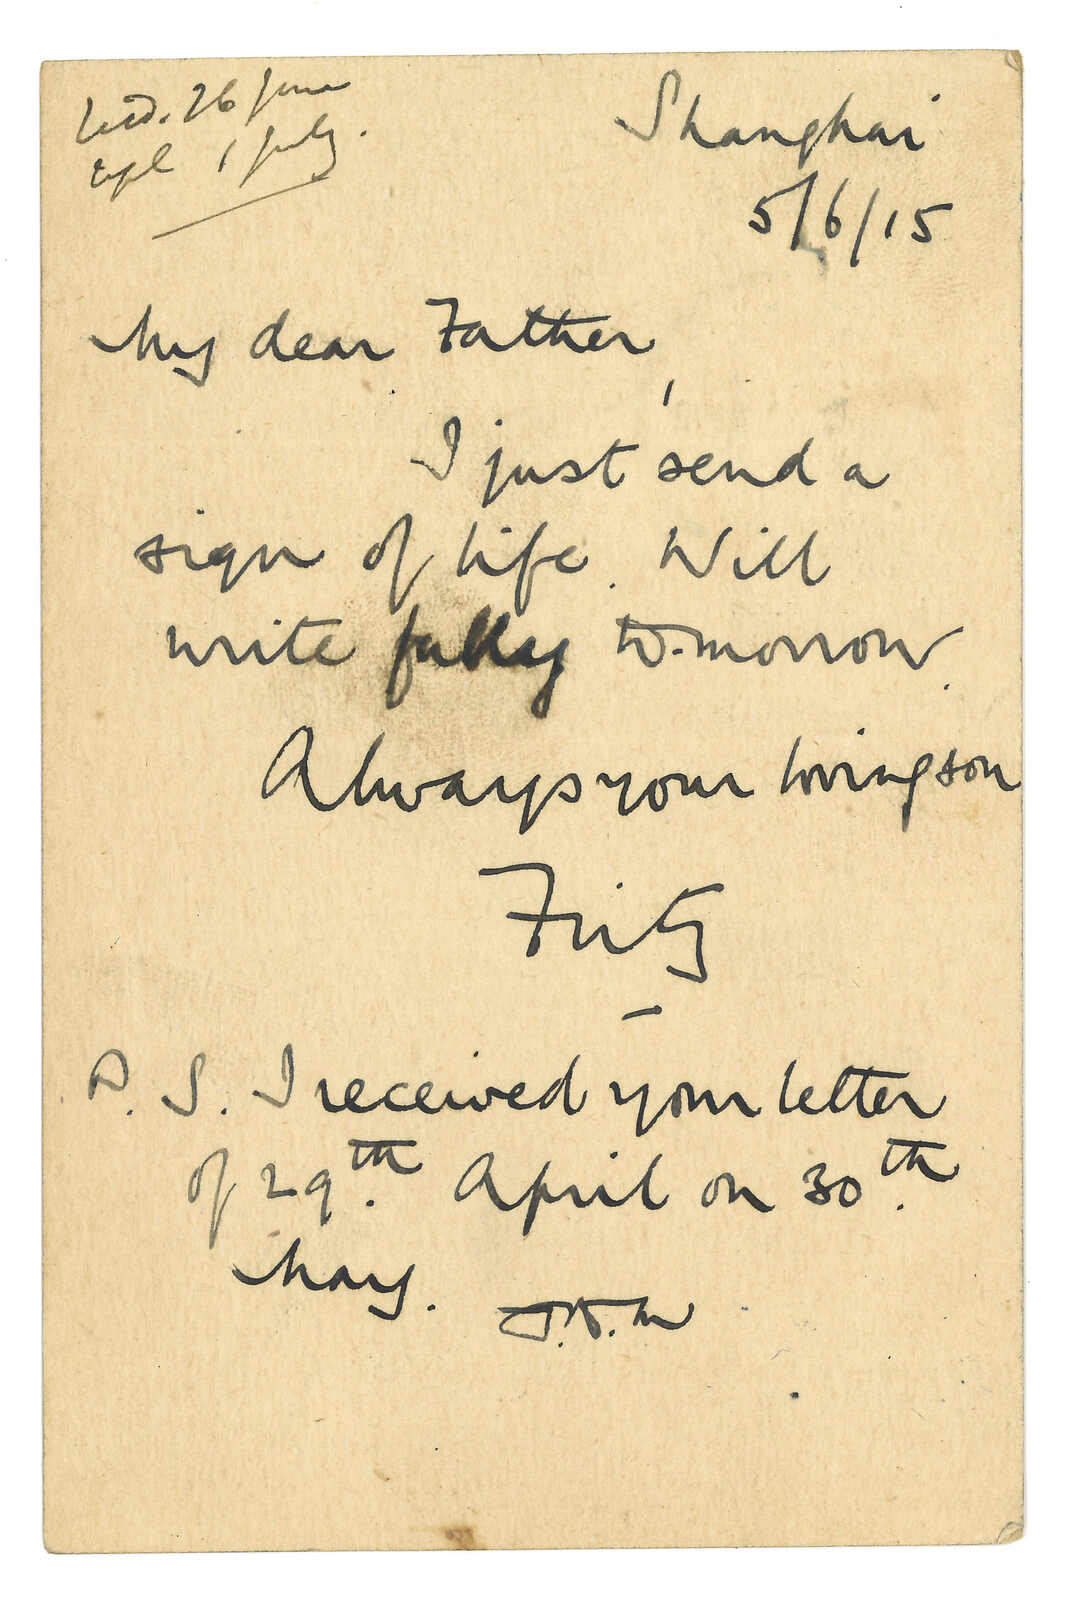 recd. 26 June
repl 1 July.
Shanghai
5/6/15
My dear Father,
I just send a
sign of life. Will
write fully to-morrow.
Always your loving son
Fritz
P. S. I received your letter
of 29th. April on 30th.
May.